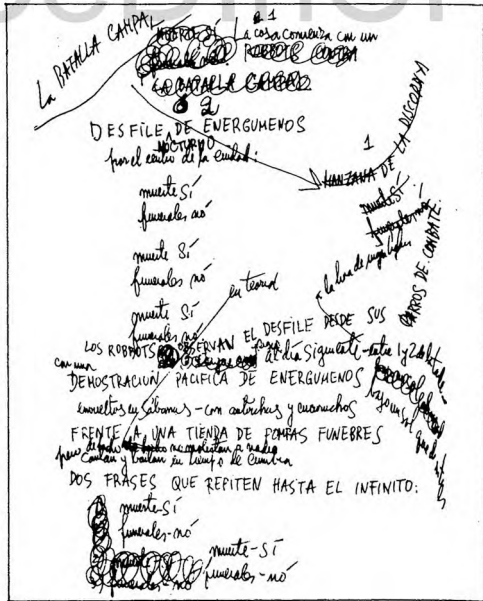 LA BATALLA CAMPAL
1
La cosa comienza con un
ROBBOTS CONTRA
LA BATALLA CAMPAL
2
DESFILE DE ENERGUMENOS
NOCTURNO
por el centro de la ciudad:
1
MANZANA DE LA DISCORDIA
muerte Sí
funerales nó
muerte Sí
funerales nó
muerte Sí
funerales nó
muerte Sí
en teoría
a la hora de
LOS ROBBOTS OBSERVAN EL DESFILE DESDE SUS
CARROS DE COMBATE.
al día siguiente - entre 1 y 2 de la tarde -
con una
DEMOSTRACION PACIFICA DE ENERGUMENOS
envueltos en sábanas - con antorchas y cucuruchos
bajo un sol que
FRENTE A UNA TIENDA DE POMPAS FUNEBRES
pero no molestan a nadie
Cantan y bailan en tiempo de Cumbia
DOS FRASES QUE REPITEN HASTA EL INFINITO:
muerte Sí
funerales - nó
muerte - Sí
funerales - nó
funerales - nó